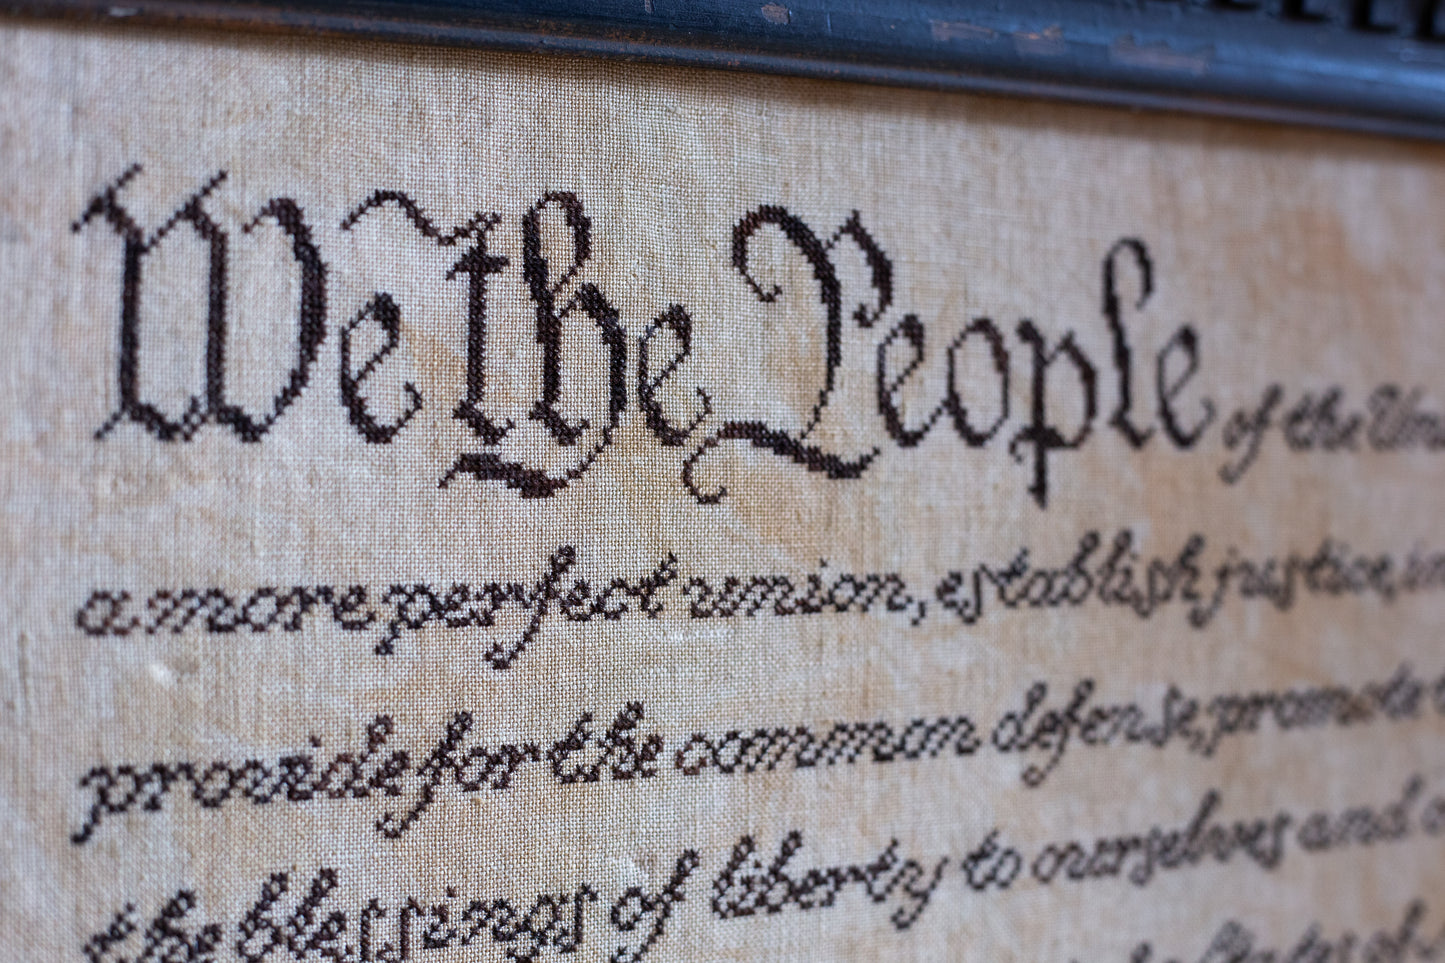 We the People of the
a more perfect union, establish justice,
provide for the common defense, promote
the blessings of liberty to ourselves and